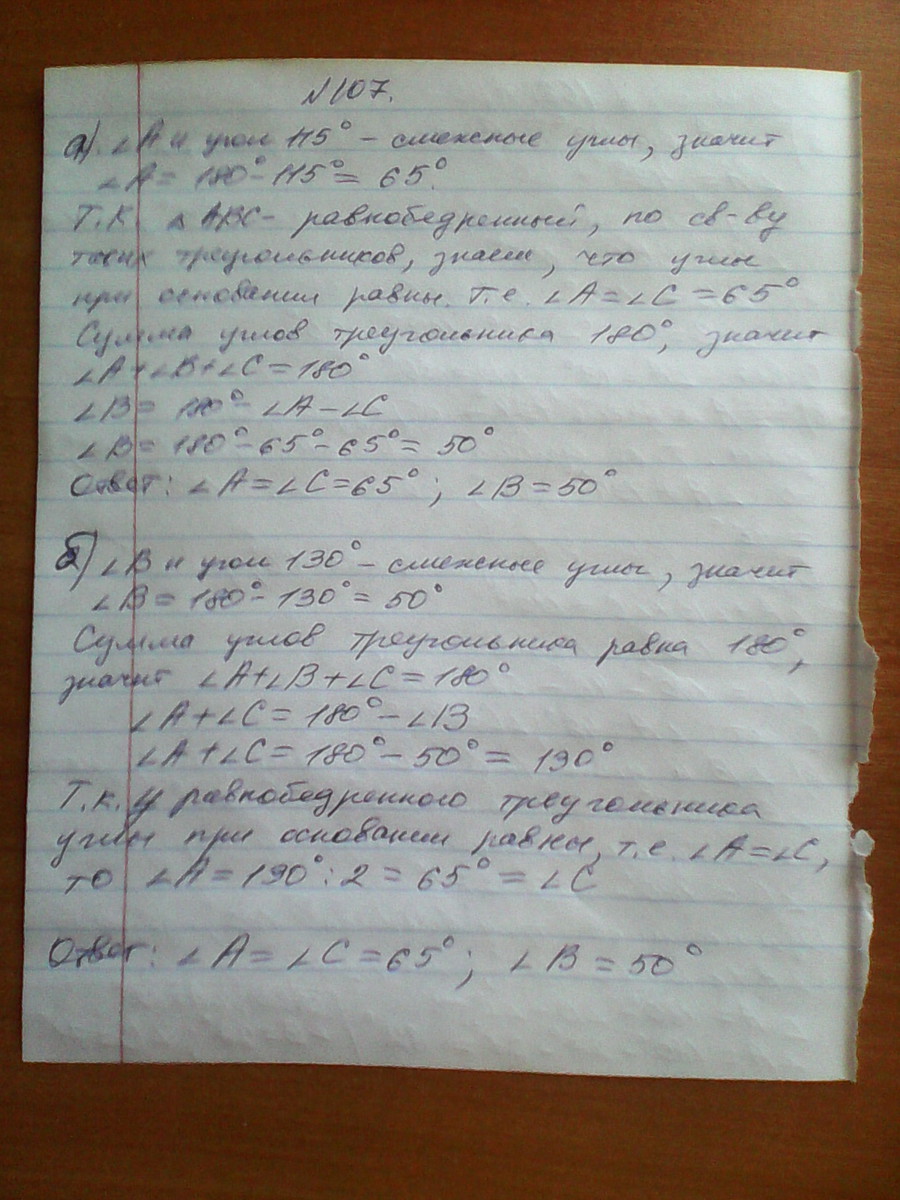 №107.
а). ∠A и угол 115° – смежные углы, значит
∠A = 180° – 115° = 65°.
Т.к. △ABC – равнобедренный, по св-ву
таких треугольников, знаем, что углы
при основании равны. т.е. ∠A = ∠C = 65°
Сумма углов треугольника 180°, значит
∠A + ∠B + ∠C = 180°
∠B = 180° – ∠A – ∠C
∠B = 180° – 65° – 65° = 50°
Ответ: ∠A = ∠C = 65° ; ∠B = 50°
б) ∠B и угол 130° – смежные углы, значит
∠B = 180° – 130° = 50°
Сумма углов треугольника равна 180°,
значит ∠A + ∠B + ∠C = 180°
∠A + ∠C = 180° – ∠B
∠A + ∠C = 180° – 50° = 130°
Т.к. у равнобедренного треугольника
углы при основании равны, т.е. ∠A = ∠C,
то ∠A = 130° : 2 = 65° = ∠C
Ответ: ∠A = ∠C = 65° ; ∠B = 50°